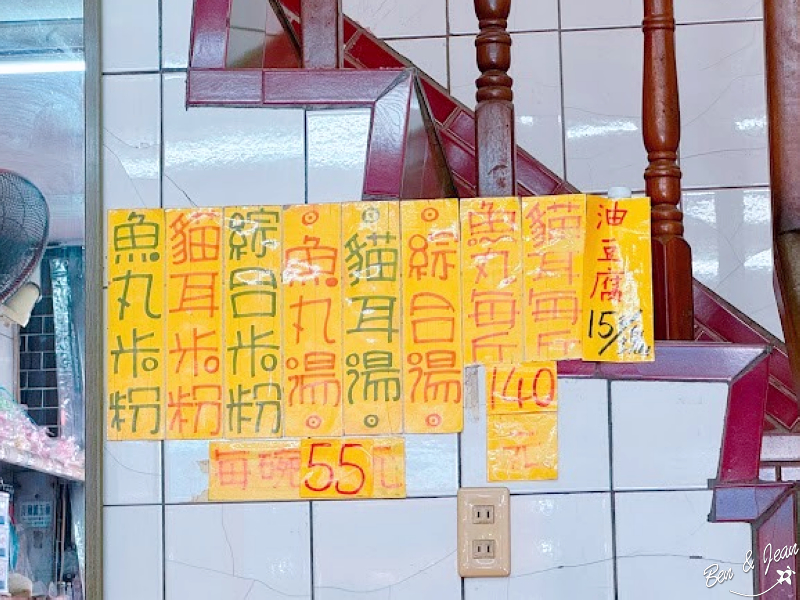 魚丸米粉
貓耳米粉
綜合米粉
魚丸湯
貓耳湯
綜合湯
魚丸每斤
貓耳每斤
油豆腐
15/
每碗55元
140
元
Ben & Jean